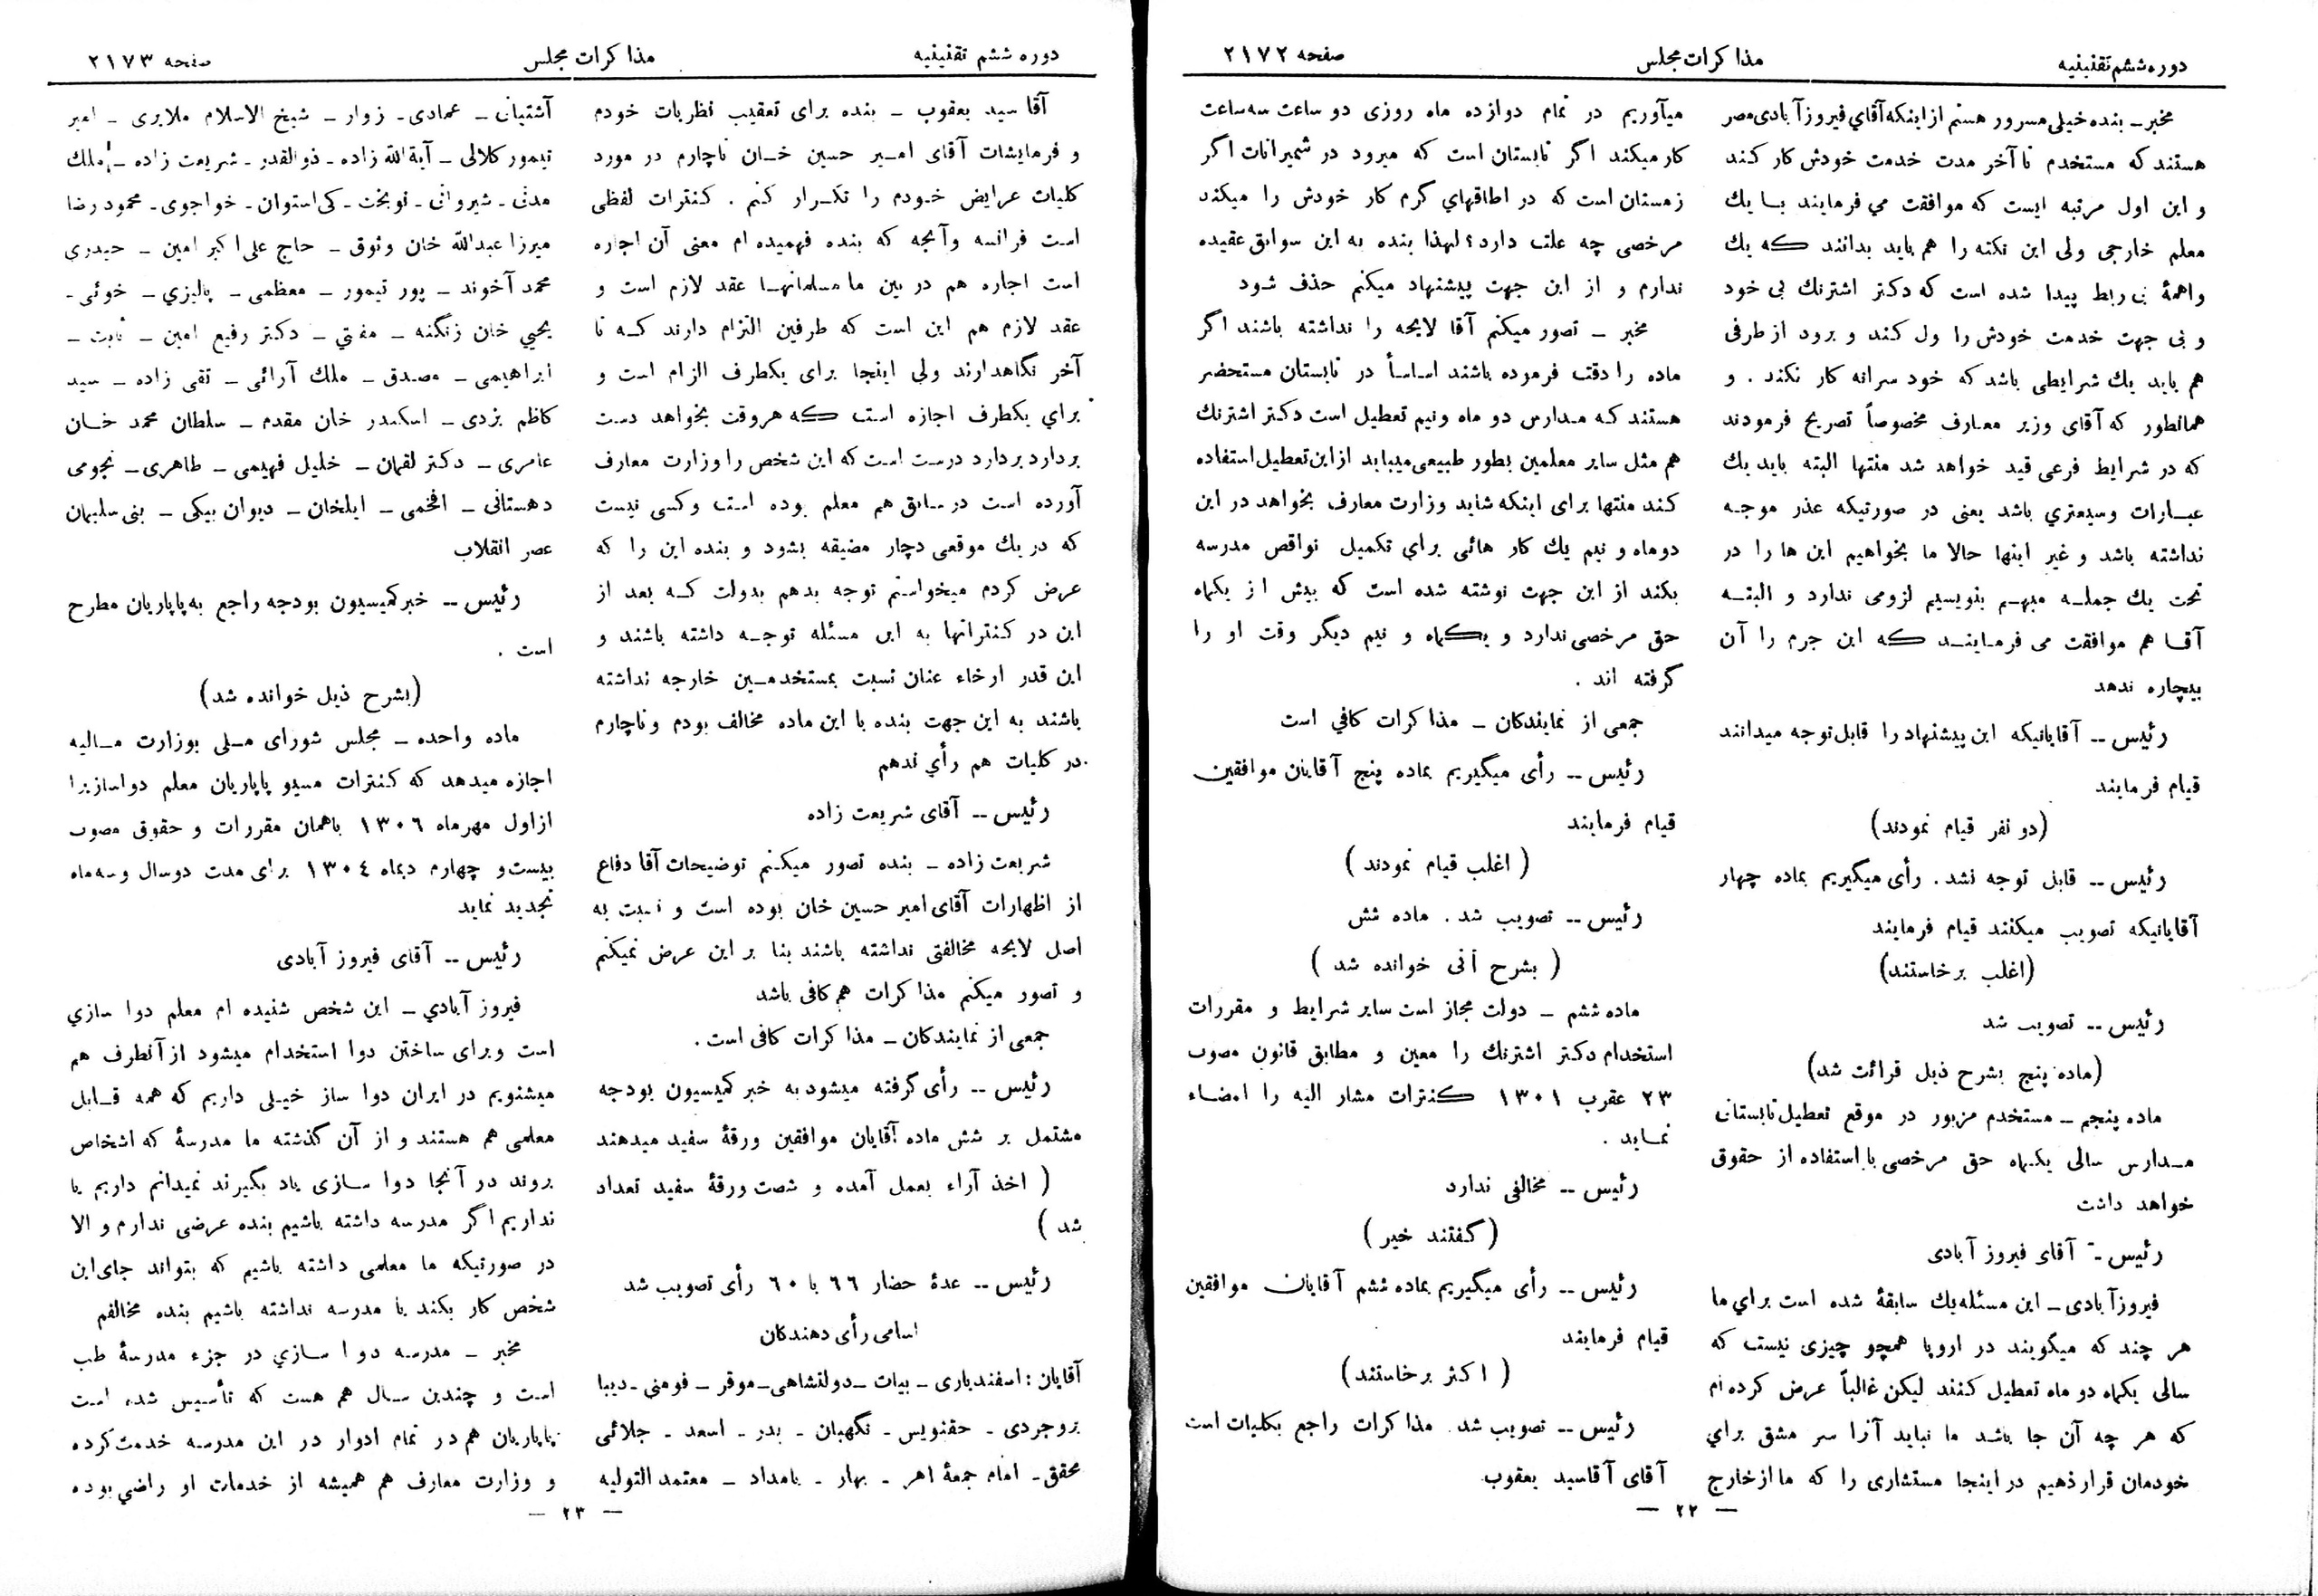 دوره ششم تقنینیه
مذاکرات مجلس
صفحه ۲۱۷۲
مخبر ـ بنده خیلی مسرور هستم از اینکه آقای فیروز آبادی مصر
هستند که مستخدم تا آخر مدت خدمت خودش کار کند
و این اول مرتبه ایست که موافقت می فرمایند با یك
معلم خارجی ولی این نکته را هم باید بدانند که یك
واهمهٔ بی ربط پیدا شده است که دکتر اشترنك بی خود
و بی جهت خدمت خودش را ول کند و برود از طرفی
هم باید یك شرایطی باشد که خود سرانه کار نکند . و
همانطور که آقای وزیر معارف مخصوصاً تصریح فرمودند
که در شرایط فرعی قید خواهد شد منتها البته باید یك
عبارات وسیعتری باشد یعنی در صورتیکه عذر موجه
نداشته باشد و غیر اینها حالا ما بخواهیم این ها را در
تحت یك جمله مبهم بنویسیم لزومی ندارد و البته
آقا هم موافقت می فرمایند که این جرم را آن
بیچاره ندهد
رئیس -- آقایانیکه این پیشنهاد را قابل توجه میدانند
قیام فرمایند
(دو نفر قیام نمودند)
رئیس -- قابل توجه نشد . رأی میگیریم بماده چهار
آقایانیکه تصویب میکنند قیام فرمایند
(اغلب برخاستند)
رئیس -- تصویب شد
(ماده پنج بشرح ذیل قرائت شد)
ماده پنجم ـ مستخدم مزبور در موقع تعطیل تابستانی
مدارس سالی یکماه حق مرخصی با استفاده از حقوق
خواهد داشت
رئیس -- آقای فیروز آبادی
فیروزآبادی ـ این مسئله یك سابقهٔ شده است برای ما
هر چند که میگویند در اروپا همچو چیزی نیست که
سالی یکماه دو ماه تعطیل کنند لیکن غالباً عرض کرده ام
که هر چه آن جا باشد ما نباید آنرا سر مشق برای
خودمان قرار دهیم در اینجا مستشاری را که ما از خارج
میآوریم در تمام دوازده ماه روزی دو ساعت سه ساعت
کار میکند اگر تابستان است که میرود در شمیرانات اگر
زمستان است که در اطاقهای گرم کار خودش را میکند
مرخصی چه علت دارد؟ لهذا بنده به این سوابق عقیده
ندارم و از این جهت پیشنهاد میکنم حذف شود
مخبر ـ تصور میکنم آقا لایحه را نداشته باشند اگر
ماده را دقت فرموده باشند اساساً در تابستان مستحضر
هستند که مدارس دو ماه ونیم تعطیل است دکتر اشترنك
هم مثل سایر معلمین بطور طبیعی میباید از این تعطیل استفاده
کند منتها برای اینکه شاید وزارت معارف بخواهد در این
دوماه و نیم یك کار هائی برای تکمیل نواقص مدرسه
بکند از این جهت نوشته شده است که بیش از یکماه
حق مرخصی ندارد و یکماه و نیم دیگر وقت او را
گرفته اند .
جمعی از نمایندگان ـ مذاکرات کافی است
رئیس -- رأی میگیریم بماده پنج آقایان موافقین
قیام فرمایند
( اغلب قیام نمودند )
رئیس -- تصویب شد . ماده شش
( بشرح آتی خوانده شد )
ماده ششم ـ دولت مجاز است سایر شرایط و مقررات
استخدام دکتر اشترنك را معین و مطابق قانون مصوب
۲۳ عقرب ۱۳۰۱ کنترات مشار الیه را امضاء
نماید .
رئیس -- مخالفی ندارد
( گفتند خیر )
رئیس -- رأی میگیریم بماده ششم آقایان موافقین
قیام فرمایند
( اکثر برخاستند )
رئیس -- تصویب شد. مذاکرات راجع بکلیات است
آقای آقاسید یعقوب
— ۲۲ —
دوره ششم تقنینیه
مذاکرات مجلس
صفحه ۲۱۷۳
آقا سید یعقوب ـ بنده برای تعقیب نظریات خودم
و فرمایشات آقای امیر حسین خان ناچارم در مورد
کلیات عرایض خودم را تکرار کنم . کنترات لفظی
است فرانسه وآنچه که بنده فهمیده ام معنی آن اجاره
است اجاره هم در بین ما مسلمانها عقد لازم است و
عقد لازم هم این است که طرفین التزام دارند که تا
آخر نگاهدارند ولی اینجا برای یکطرف الزام است و
برای یکطرف اجازه است که هروقت بخواهد دست
بردارد بردارد درست است که این شخص را وزارت معارف
آورده است در سابق هم معلم بوده است وکسی نیست
که در یك موقعی دچار مضیقه بشود و بنده این را که
عرض کردم میخواستم توجه بدهم بدولت که بعد از
این در کنتراتها به این مسئله توجه داشته باشند و
این قدر ارخاء عنان نسبت بمستخدمین خارجه نداشته
باشند به این جهت بنده با این ماده مخالف بودم و ناچارم
در کلیات هم رأی ندهم
رئیس -- آقای شریعت زاده
شریعت زاده ـ بنده تصور میکنم توضیحات آقا دفاع
از اظهارات آقای امیر حسین خان بوده است و نسبت به
اصل لایحه مخالفتی نداشته باشند بنا بر این عرض نمیکنم
و تصور میکنم مذاکرات هم کافی باشد
جمعی از نمایندگان ـ مذاکرات کافی است .
رئیس -- رأی گرفته میشود به خبر کمیسیون بودجه
مشتمل بر شش ماده آقایان موافقین ورقهٔ سفید میدهند
( اخذ آراء بعمل آمده و شصت ورقهٔ سفید تعداد
شد )
رئیس -- عدهٔ حضار ۶۶ با ۶۰ رأی تصویب شد
اسامی رأی دهندگان
آقایان : اسفندیاری ـ بیات ـ دولتشاهی ـ موقر ـ فومنی ـ دیبا
بروجردی ـ حقنویس ـ نگهبان ـ بدر ـ اسعد ـ جلائی
محقق ـ امام جمعهٔ اهر ـ بهار ـ بامداد ـ معتمد التولیه
آشتیانی ـ عمادی ـ زوار ـ شیخ الاسلام ملایری ـ امیر
تیمور کلالی ـ آیة الله زاده ـ ذوالقدر ـ شریعت زاده ـ ملك
مدنی ـ شیروانی ـ نوبخت ـ کی استوان ـ خواجوی ـ محمود رضا
میرزا عبدالله خان وثوق ـ حاج علی اکبر امین ـ حیدری
محمد آخوند ـ پور تیمور ـ معظمی ـ پالیزی ـ خوئی ـ
یحیی خان زنگنه ـ مفتی ـ دکتر رفیع امین ـ ثابت ـ
ابراهیمی ـ مصدق ـ ملك آرائی ـ تقی زاده ـ سید
کاظم یزدی ـ اسکندر خان مقدم ـ سلطان محمد خان
عامری ـ دکتر لقمان ـ خلیل فهیمی ـ طاهری ـ نجومی
دهستانی ـ افخمی ـ ایلخان ـ دیوان بیگی ـ بنی سلیمان
عصر انقلاب
رئیس -- خبر کمیسیون بودجه راجع به پاپاریان مطرح
است .
(بشرح ذیل خوانده شد)
ماده واحده ـ مجلس شورای ملی بوزارت مالیه
اجازه میدهد که کنترات مسیو پاپاریان معلم دواسازیرا
از اول مهرماه ۱۳۰۶ باهمان مقررات و حقوق مصوب
بیست و چهارم دیماه ۱۳۰۴ برای مدت دوسال وسه ماه
تجدید نماید
رئیس -- آقای فیروز آبادی
فیروز آبادی ـ این شخص شنیده ام معلم دوا سازی
است وبرای ساختن دوا استخدام میشود از آنطرف هم
میشنویم در ایران دوا ساز خیلی داریم که همه قابل
معلمی هم هستند و از آن گذشته ما مدرسهٔ که اشخاص
بروند در آنجا دوا سازی یاد بگیرند نمیدانم داریم یا
نداریم اگر مدرسه داشته باشیم بنده عرضی ندارم و الا
در صورتیکه ما معلمی داشته باشیم که بتواند جای این
شخص کار بکند یا مدرسه نداشته باشیم بنده مخالفم
مخبر ـ مدرسه دوا سازی در جزء مدرسهٔ طب
است و چندین سال هم هست که تأسیس شده است
پاپاریان هم در تمام ادوار در این مدرسه خدمت کرده
و وزارت معارف هم همیشه از خدمات او راضی بوده
— ۲۳ —